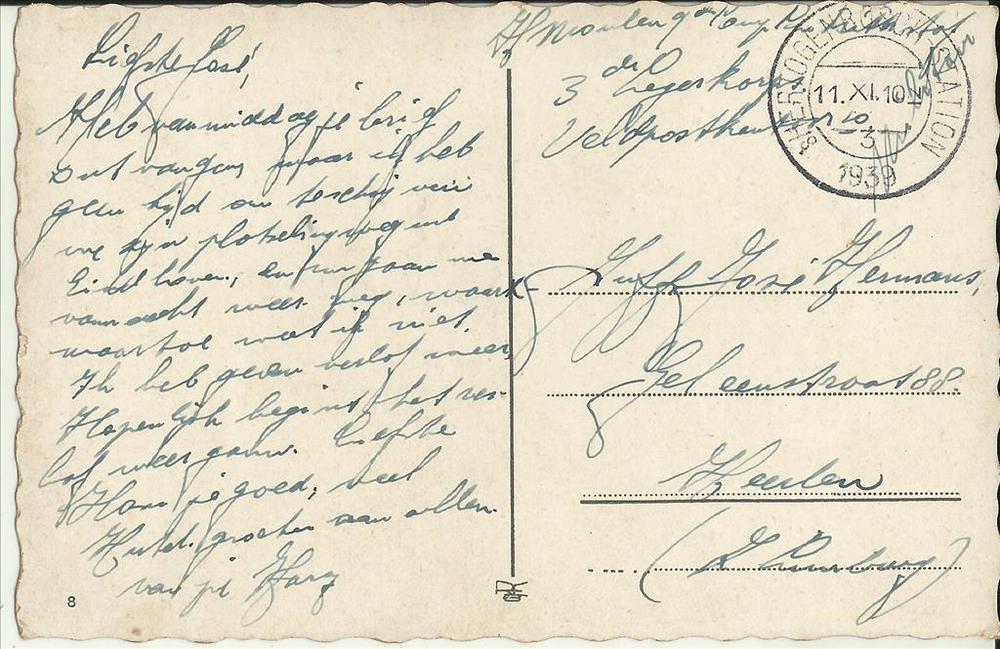 Liefste José,
Heb vanmiddag je brief
ontvangen maar ik heb
geen tijd om
we zijn plotseling weg uit
Eindhoven, en nu gaan we
vannacht weer weg, waar
waartoe weet ik niet.
Ik heb geen verlof meer,
Hopenlijk begint het ver-
lof weer gauw. Liefste
Hou je goed, veel
groeten aan allen.
van je Harry
8
H Moulen
3 de Legerkorps
Veldpostkantoor no 3
'S HERTOGENBOSCH STATION
11.XI.10
1939
Juffr José Hermans,
Geleenstraat 88.
Heerlen
(Z Limburg)